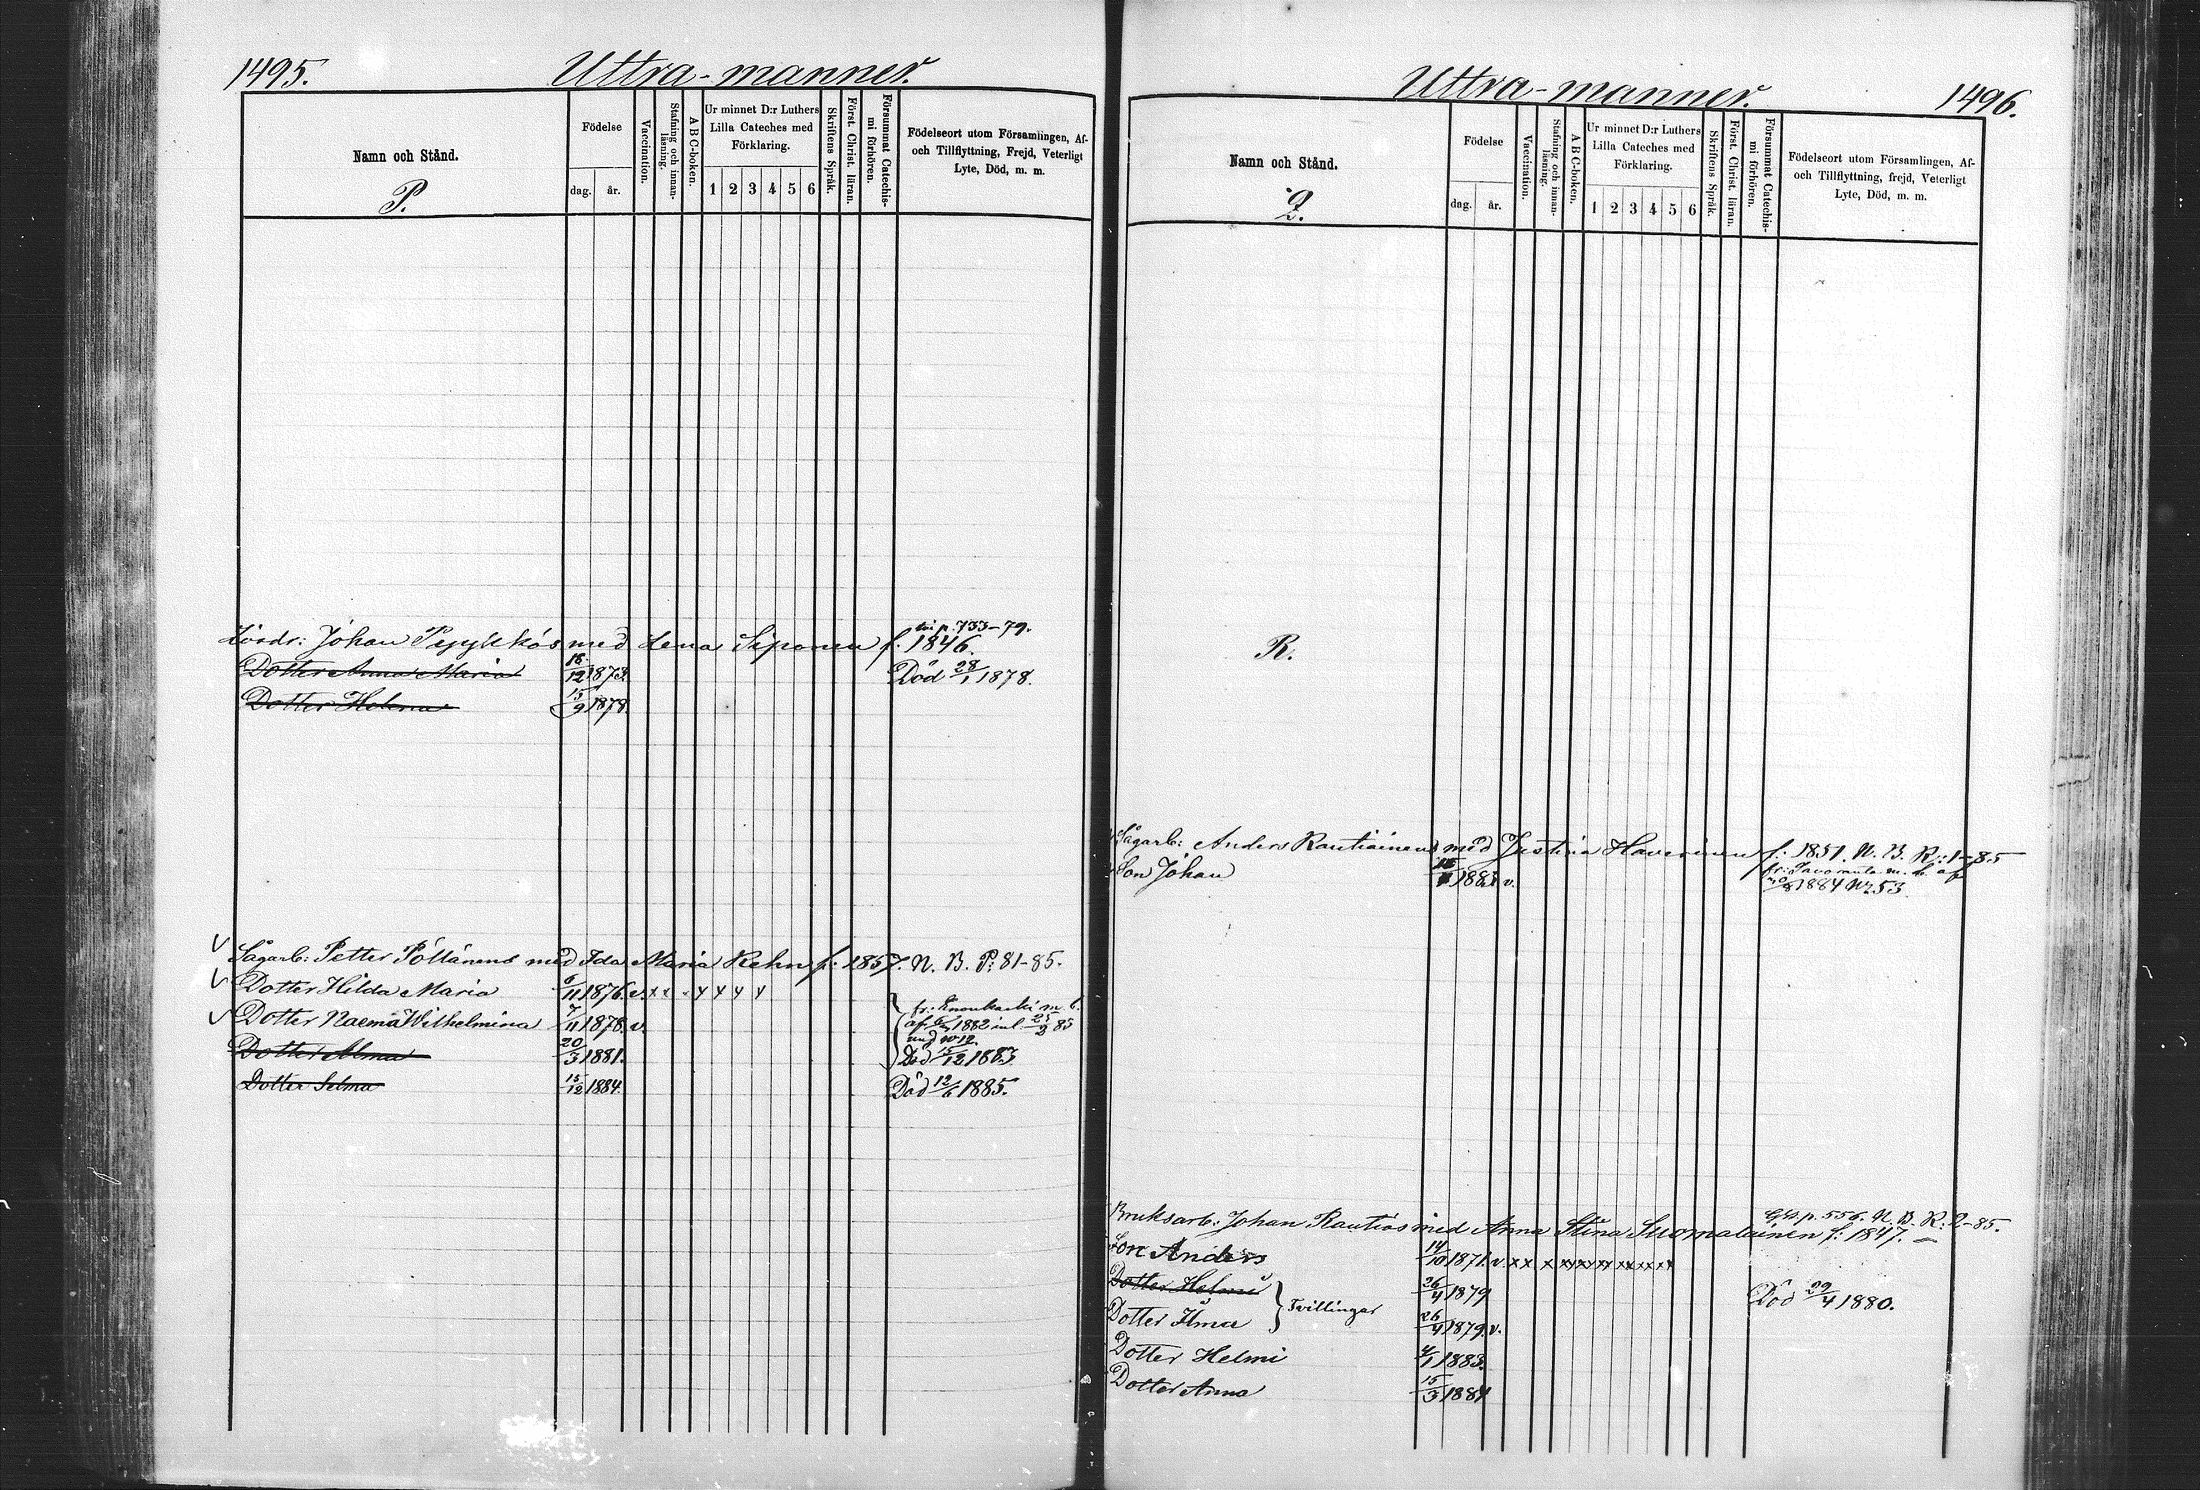 1495.
Uttra-manner.
Namn och Stånd.
P.
Födelse
dag. år.
Vaccination.
Stafning och innan-
läsning.
ABC-boken.
Ur minnet D:r Luthers
Lilla Cateches med
Förklaring.
1 2 3 4 5 6
Skriftens Språk.
Först. Christ. läran.
Försummat Catechis-
mi förhören.
Födelseort utom Församlingen, Af-
och Tillflyttning, Frejd, Veterligt
Lyte, Död, m. m.
p. 733-79.
Johan Pyykkös med Lena Siponen f. 1846.
Dotter Anna Maria 18/12 1873. Död 28/1 1878.
Dotter Helena 15/9 1878.
√ Sågarb: Petter Pöllänens med Ida Maria Rehn f: 1857. N. B. P: 81-85.
√ Dotter Hilda Maria 6/11 1876. v. x x
√ Dotter Naema Wilhelmina 7/11 1878. v.
fr: Enonkoski m. b.
af 1882 inl. 25/2 85
und No 12.
Dotter Alma 20/3 1881. Död 15/12 1883.
Dotter Selma 15/12 1884. Död 12/6 1885.
Uttra-manner.
1496.
Namn och Stånd.
Q.
Födelse
dag. år.
Vaccination.
Stafning och innan-
läsning.
ABC-boken.
Ur minnet D:r Luthers
Lilla Cateches med
Förklaring.
1 2 3 4 5 6
Skriftens Språk.
Först. Christ. läran.
Försummat Catechis-
mi förhören.
Födelseort utom Församlingen, Af-
och Tillflyttning, frejd, Veterligt
Lyte, Död, m. m.
R.
Sågarb: Anders Rautiainens med Justina Haverinen f: 1851. N. B. R: 1-85
Son Johan 1883 v.
fr: Savonranta m. b. af
1884 No 53.
p. 556. N. B. R: 2-85.
Bruksarb: Johan Rautios med Anna Stina Suomalainen f: 1847.
Son Anders 14/10 1871. v. x x x x x x x x x x
Dotter Helmi 26/4 1879 Död 29/4 1880.
Tvillingar
Dotter Ilma 26/4 1879. v.
Dotter Helmi 4/1 1883.
Dotter Anna 15/3 1884